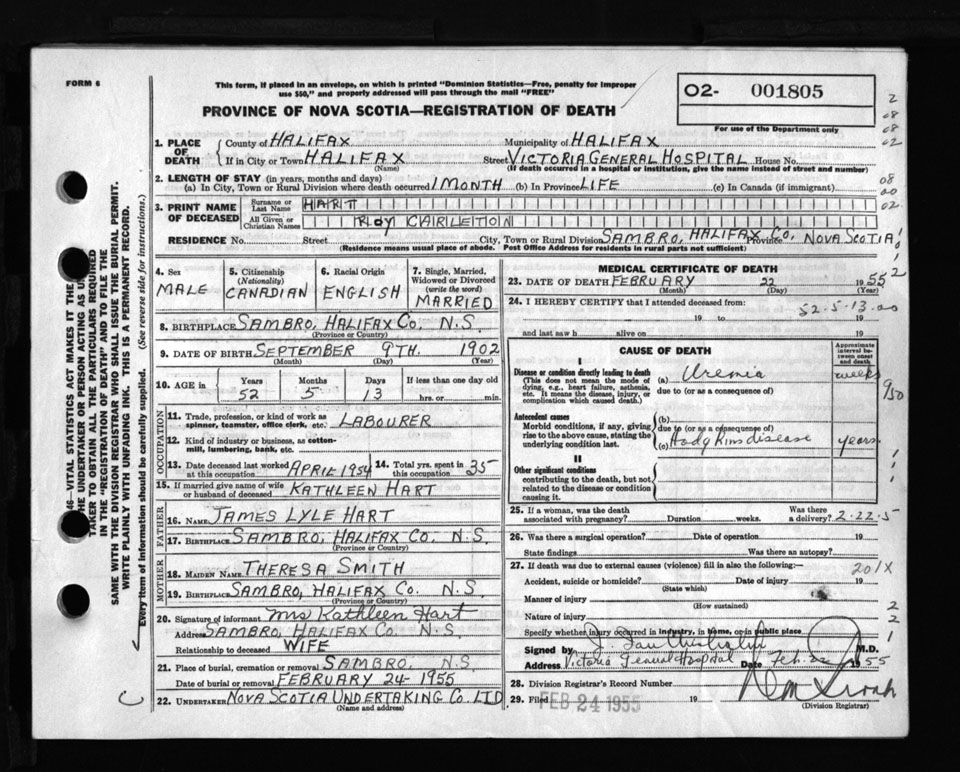 FORM 6
This form, if placed in an envelope, on which is printed "Dominion Statistics—Free, penalty for improper
use $50," and properly addressed will pass through the mail "FREE"
PROVINCE OF NOVA SCOTIA—REGISTRATION OF DEATH
O2- 001805
For use of the Department only
2
08
08
02
08
00
02
1. PLACE OF DEATH
County of HALIFAX Municipality of HALIFAX
If in City or Town HALIFAX Street VICTORIA GENERAL HOSPITAL House No.
(Name) (If death occurred in a hospital or institution, give the name instead of street and number)
2. LENGTH OF STAY (in years, months and days)
(a) In City, Town or Rural Division where death occurred 1 MONTH (b) In Province LIFE (c) In Canada (if immigrant)
3. PRINT NAME OF DECEASED
Surname or Last Name HART
All Given or Christian Names ROY CARLETON
RESIDENCE No. Street City, Town or Rural Division SAMBRO, HALIFAX CO, Province NOVA SCOTIA
(Residence means usual place of abode. Post Office Address for residents in rural parts not sufficient)
4. Sex MALE
5. Citizenship (Nationality) CANADIAN
6. Racial Origin ENGLISH
7. Single, Married, Widowed or Divorced (write the word) MARRIED
8. BIRTHPLACE SAMBRO, HALIFAX CO, N.S.
(Province or Country)
9. DATE OF BIRTH SEPTEMBER 9TH. 1902
(Month) (Day) (Year)
10. AGE in Years 52 Months 5 Days 13 If less than one day old hrs. or min.
OCCUPATION
11. Trade, profession, or kind of work as
spinner, teamster, office clerk, etc. LABOURER
12. Kind of industry or business, as cotton-
mill, lumbering, bank, etc.
13. Date deceased last worked at this occupation APRIL 1954 14. Total yrs. spent in this occupation 35
15. If married give name of wife or husband of deceased KATHLEEN HART
FATHER
16. NAME JAMES LYLE HART
17. BIRTHPLACE SAMBRO, HALIFAX CO. N.S.
(Province or Country)
MOTHER
18. MAIDEN NAME THERESA SMITH
19. BIRTHPLACE SAMBRO, HALIFAX CO. N.S.
(Province or Country)
20. Signature of informant Mrs Kathleen Hart
Address SAMBRO, HALIFAX CO. N.S.
Relationship to deceased WIFE
21. Place of burial, cremation or removal SAMBRO, N.S.
Date of burial or removal FEBRUARY 24-1955
22. UNDERTAKER NOVA SCOTIA UNDERTAKING CO. LTD
(Name and address)
MEDICAL CERTIFICATE OF DEATH
23. DATE OF DEATH FEBRUARY 22 1955
(Month) (Day) (Year)
24. I HEREBY CERTIFY that I attended deceased from:
52-5-13-00
19 to 19
and last saw h alive on 19
CAUSE OF DEATH
Approximate interval between onset and death
I
Disease or condition directly leading to death
(This does not mean the mode of
dying, e.g., heart failure, asthenia,
etc. It means the disease, injury, or
complication which caused death.)
(a) Uremia weeks
due to (or as a consequence of)
950
Antecedent causes
Morbid conditions, if any, giving
rise to the above cause, stating the
underlying condition last.
(b)
due to (or as a consequence of)
(c) Hodgkins disease years.
II
Other significant conditions
contributing to the death, but not
related to the disease or condition
causing it.
25. If a woman, was the death associated with pregnancy? Duration weeks. Was there a delivery? 2-22-5
26. Was there a surgical operation? Date of operation 19
State findings Was there an autopsy?
27. If death was due to external causes (violence) fill in also the following:— 201X
Accident, suicide or homicide? Date of injury 19
(State which)
Manner of injury
(How sustained)
Nature of injury
Specify whether injury occurred in industry, in home, or in public place
Signed by M.D.
Address Victoria General Hospital Date Feb. 22 1955
28. Division Registrar's Record Number
29. Filed FEB 24 1955 19
(Division Registrar)
46—VITAL STATISTICS ACT MAKES IT THE
THE UNDERTAKER OR PERSON ACTING AS
TAKER TO OBTAIN ALL THE PARTICULARS REQUIRED
IN THE "REGISTRATION OF DEATH" AND TO FILE THE
SAME WITH THE DIVISION REGISTRAR WHO SHALL ISSUE THE BURIAL PERMIT.
WRITE PLAINLY WITH UNFADING INK. THIS IS A PERMANENT RECORD.
Every item of information should be carefully supplied. (See reverse side for instructions.)